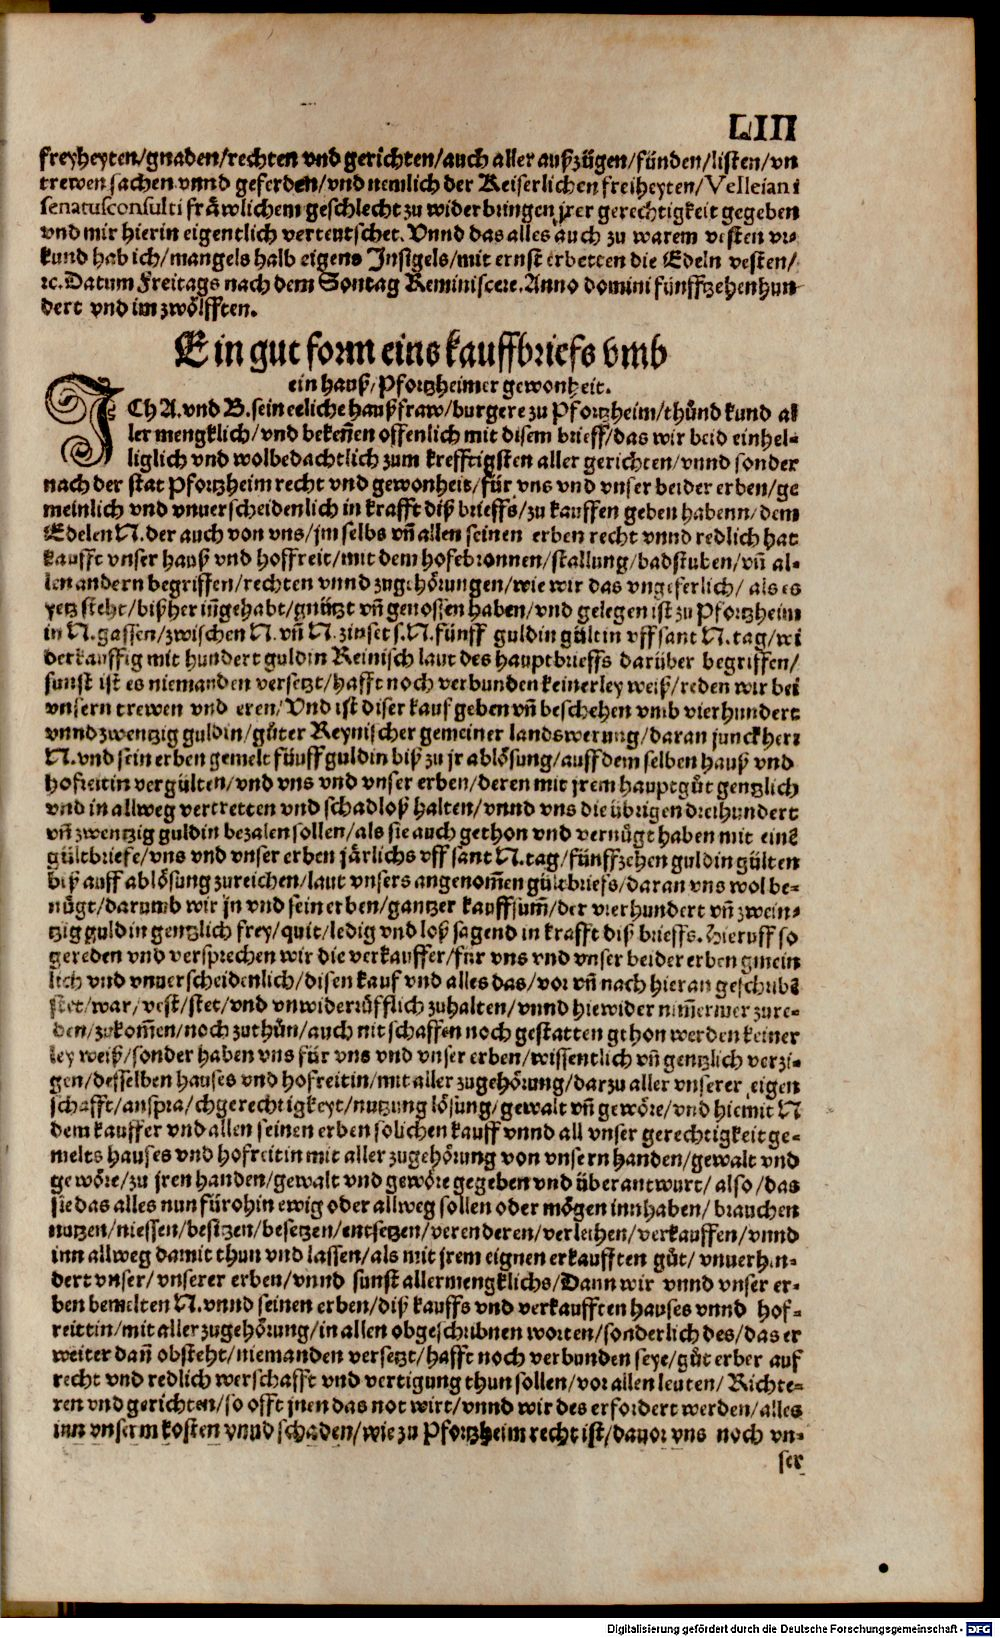 LIII
freyheyten/gnaden/rechten vnd gerichten/auch aller außzügen/fünden/listen/vn
trewen sachen vnnd geferden/vnd nemlich der Keiserlichen freiheyten/Velleiani
senatusconsulti fräwlichem geschlecht zu widerbringen jrer gerechtigkeit gegeben
vnd mir hierin eigentlich verteutschet. Vnnd das alles auch zu warem vesten vr-
kund hab ich/mangels halb eigens Insigels/mit ernst erbetten die Edeln vesten/
rc. Datum Freitags nach dem Sontag Reminiscere. Anno domini fünffzehenhun
dert vnd im zwölfften.
Ein gut form eins kauffbriefs vmb
ein hauß/Pfortzheimer gewonheit.
ICh A. vnd B. sein eeliche haußfraw/burgere zu Pfortzheim/thůnd kund al
ler mengklich/vnd bekeñen offenlich mit disem brieff/das wir beid einhel-
liglich vnd wolbedachtlich zum krefftigsten aller gerichten/vnnd sonder
nach der stat Pfortzheim recht vnd gewonheit/für vns vnd vnser beider erben/ge
meinlich vnd vnuerscheidenlich in krafft diß brieffs/zu kauffen geben habenn/dem
Edelen N. der auch von vns/jm selbs vñ allen seinen erben recht vnnd redlich hat
kaufft vnser hauß vnd hoffreit/mit dem hofebronnen/stallung/badstuben/vñ al-
len andern begriffen/rechten vnnd zugehörungen/wie wir das vngeferlich/als es
yetz steht/bißher iñgehabt/gnützt vñ genossen haben/vnd gelegen ist zu Pfortzheim
in N. gassen/zwischen N. vñ N. zinset s. N. fünff guldin gült in vff sant N. tag/wi
derkauffig mit hundert guldin Reinisch laut des hauptbrieffs darüber begriffen/
sunst ist es niemanden versetzt/hafft noch verbunden keinerley weiß/reden wir bei
vnsern trewen vnd eren/Vnd ist diser kauf geben vñ beschehen vmb vierhundert
vnnd zwentzig guldin/gůter Reynischer gemeiner landswerung/daran junckherr
N. vnd sein erben gemelt fünff guldin biß zu jr ablösung/auff dem selben hauß vnd
hofreitin vergülten/vnd vns vnd vnser erben/deren mit jrem hauptgůt gentzlich
vnd in allweg vertretten vnd schadloß halten/vnnd vns die übrigen dreihundert
vñ zwentzig guldin bezalen sollen/als sie auch gethon vnd vernůgt haben mit einē
gültbriefe/vns vnd vnser erben järlichs vff sant N. tag/fünffzehen guldin gülten
biß auff ablösung zureichen/laut vnsers angenom̃en gültbriefs/daran vns wol be-
nůgt/darumb wir jn vnd sein erben/gantzer kauffsum̃/der vierhundert vñ zwein-
tzig guldin gentzlich frey/quit/ledig vnd loß sagend in krafft diß brieffs. Hieruff so
gereden vnd versprechen wir die verkauffer/für vns vnd vnser beider erben gmein
lich vnd vnuerscheidenlich/disen kauf vnd alles das/vor vñ nach hieran geschribē
stet/war/vest/stet/vnd vnwiderrůfflich zuhalten/vnnd hiewider nim̃ermer zure-
den/zukom̃en/noch zuthůn/auch nit schaffen noch gestatten gthon werden keiner
ley weiß/sonder haben vns für vns vnd vnser erben/wissentlich vñ gentzlich verzi-
gen/desselben hauses vnd hofreitin/mit aller zugehörung/darzu aller vnserer eigen
schafft/anspra/chgerechtigkeyt/nutzung lösung/gewalt vñ gewöre/vnd hiemit N
dem kauffer vnd allen seinen erben solichen kauff vnnd all vnser gerechtigkeit ge-
melts hauses vnd hofreitin mit aller zugehörung von vnsern handen/gewalt vnd
gewöre/zu jren handen/gewalt vnd gewöre gegeben vnd überantwurt/also/das
sie das alles nun fürohin ewig oder allweg sollen oder mögen innhaben/brauchen
nutzen/niessen/besitzen/besetzen/entsetzen/verenderen/verleihen/verkauffen/vnnd
inn allweg damit thun vnd lassen/als mit jrem eignen erkaufften gůt/vnuerhin-
dert vnser/vnserer erben/vnnd sunst allermengklichs/Dann wir vnnd vnser er-
ben bemelten N. vnnd seinen erben/diß kauffs vnd verkaufften hauses vnnd hof-
reittin/mit aller zugehörung/in allen obgeschribnen worten/sonderlich des/das er
weiter dañ obsteht/niemanden versetzt/hafft noch verbunden seye/gůt erber auf
recht vnd redlich werschafft vnd vertigung thun sollen/vor allen leuten/Richte-
ren vnd gerichten/so offt jnen das not wirt/vnnd wir des erfordert werden/alles
inn vnserm kosten vnnd schaden/wie zu Pfortzheim recht ist/dauor vns noch vn-
ser
Digitalisierung gefördert durch die Deutsche Forschungsgemeinschaft - DFG